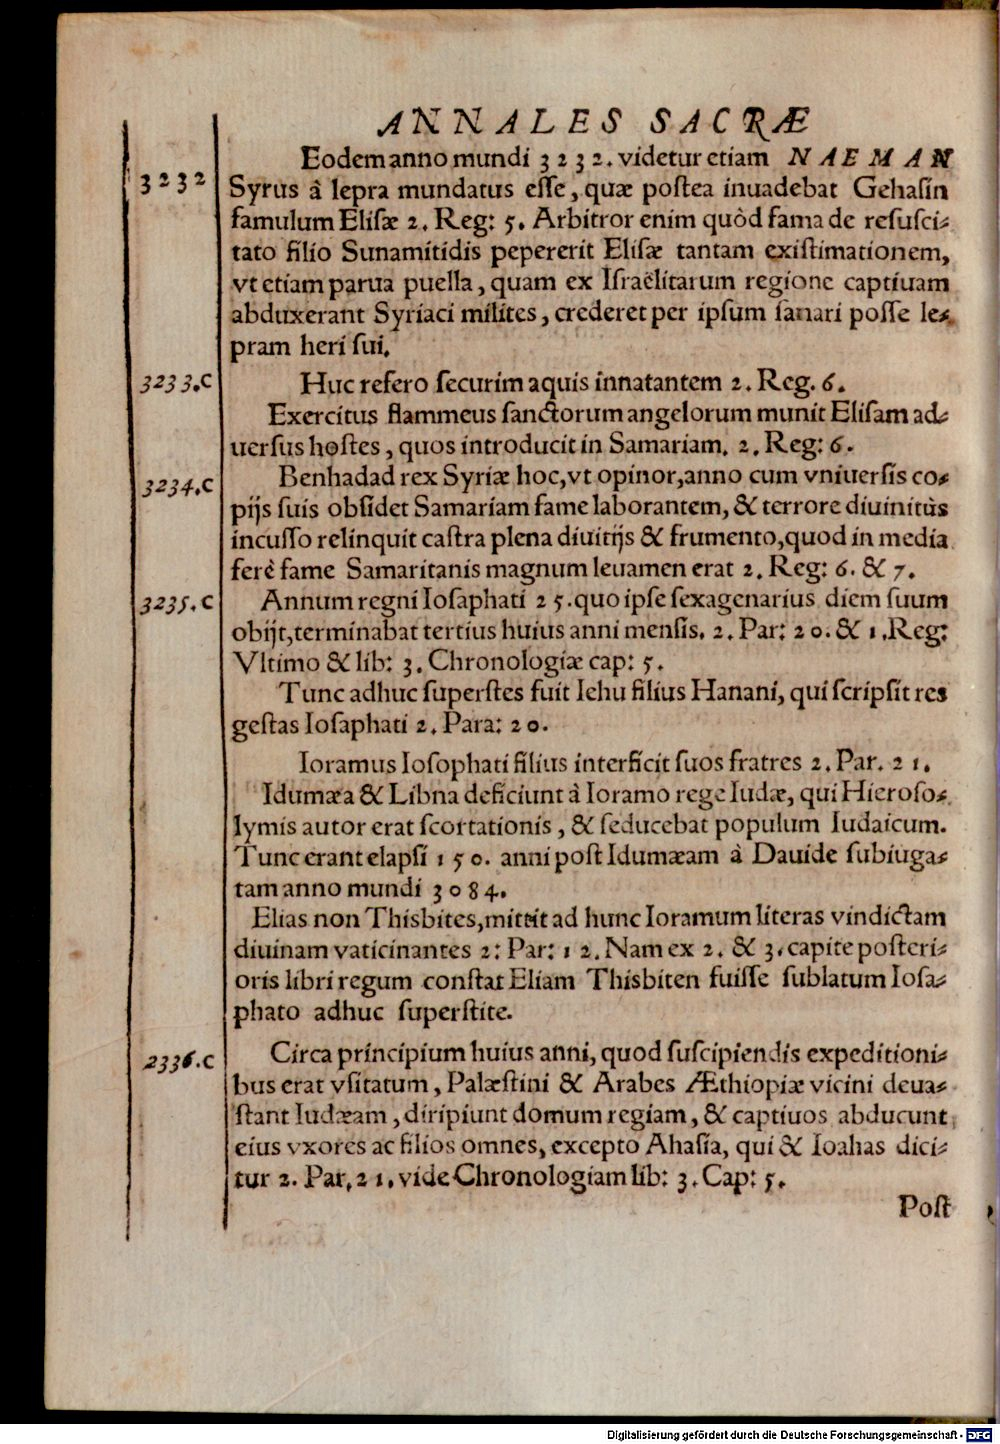 ANNALES SACRÆ
Eodem anno mundi 3232. videtur etiam NAEMAN
3232
Syrus â lepra mundatus eſſe, quæ poſtea inuadebat Gehaſin
famulum Eliſæ 2. Reg: 5. Arbitror enim quôd fama de reſuſci-
tato filio Sunamitidis pepererit Eliſæ tantam exiſtimationem,
vt etiam parua puella, quam ex Iſraëlitarum regione captiuam
abduxerant Syriaci milites, crederet per ipſum ſanari poſſe le-
pram heri ſui.
3233.C
Huc refero ſecurim aquis innatantem 2. Reg. 6.
Exercitus flammeus ſanctorum angelorum munit Eliſam ad-
uerſus hoſtes, quos introducit in Samariam. 2. Reg: 6.
3234.C
Benhadad rex Syriæ hoc, vt opinor, anno cum vniuerſis co-
pijs ſuis obſidet Samariam fame laborantem, & terrore diuinitùs
incuſſo relinquit caſtra plena diuitijs & frumento, quod in media
ferè fame Samaritanis magnum leuamen erat 2. Reg: 6. & 7.
3235.C
Annum regni Ioſaphati 25. quo ipſe ſexagenarius diem ſuum
obijt, terminabat tertius huius anni menſis. 2. Par: 20. & 1. Reg:
Vltimo & lib: 3. Chronologiæ cap: 5.
Tunc adhuc ſuperſtes fuit Iehu filius Hanani, qui ſcripſit res
geſtas Ioſaphati 2. Para: 20.
Ioramus Ioſophati filius interficit ſuos fratres 2. Par. 21.
Idumæa & Libna deficiunt â Ioramo rege Iudæ, qui Hieroſo-
lymis autor erat ſcortationis, & ſeducebat populum Iudaicum.
Tunc erant elapſi 150. anni poſt Idumæam â Dauide ſubiuga-
tam anno mundi 3084.
Elias non Thisbites, mittit ad hunc Ioramum literas vindictam
diuinam vaticinantes 2: Par: 12. Nam ex 2. & 3. capite poſteri-
oris libri regum conſtat Eliam Thisbiten fuiſſe ſublatum Ioſa-
phato adhuc ſuperſtite.
2336.C
Circa principium huius anni, quod ſuſcipiendis expeditioni-
bus erat vſitatum, Palæſtini & Arabes Æthiopiæ vicini deua-
ſtant Iudæam, diripiunt domum regiam, & captiuos abducunt
eius vxores ac filios omnes, excepto Ahaſia, qui & Ioahas dici-
tur 2. Par. 21. vide Chronologiam lib: 3. Cap: 5.
Poſt
Digitalisierung gefördert durch die Deutsche Forschungsgemeinschaft - DFG